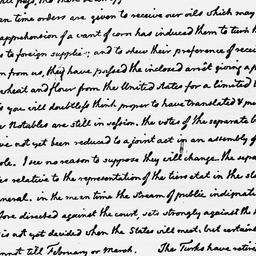 an time orders are given to receive our oils which may
apprehension of a want of corn has induced them to turn th
s to foreign supplies; and to shew their preference of rece
n from us, they have passed the inclosed arret giving a p
wheat and flour from the United States for a limited t
s you will doubtless think proper to have translated & pu
e Notables are still in session. the votes of the separate b
ve not yet been reduced to a joint act in an assembly of
ole. I see no reason to suppose they will change the sepa
es relative to the representation of the tiers etat in the sta
eneral. in the mean time the stream of public indignati
fore directed against the court, sets strongly against the
is not yet decided when the States will meet, but certain
annot till February or March. The Turks have retir